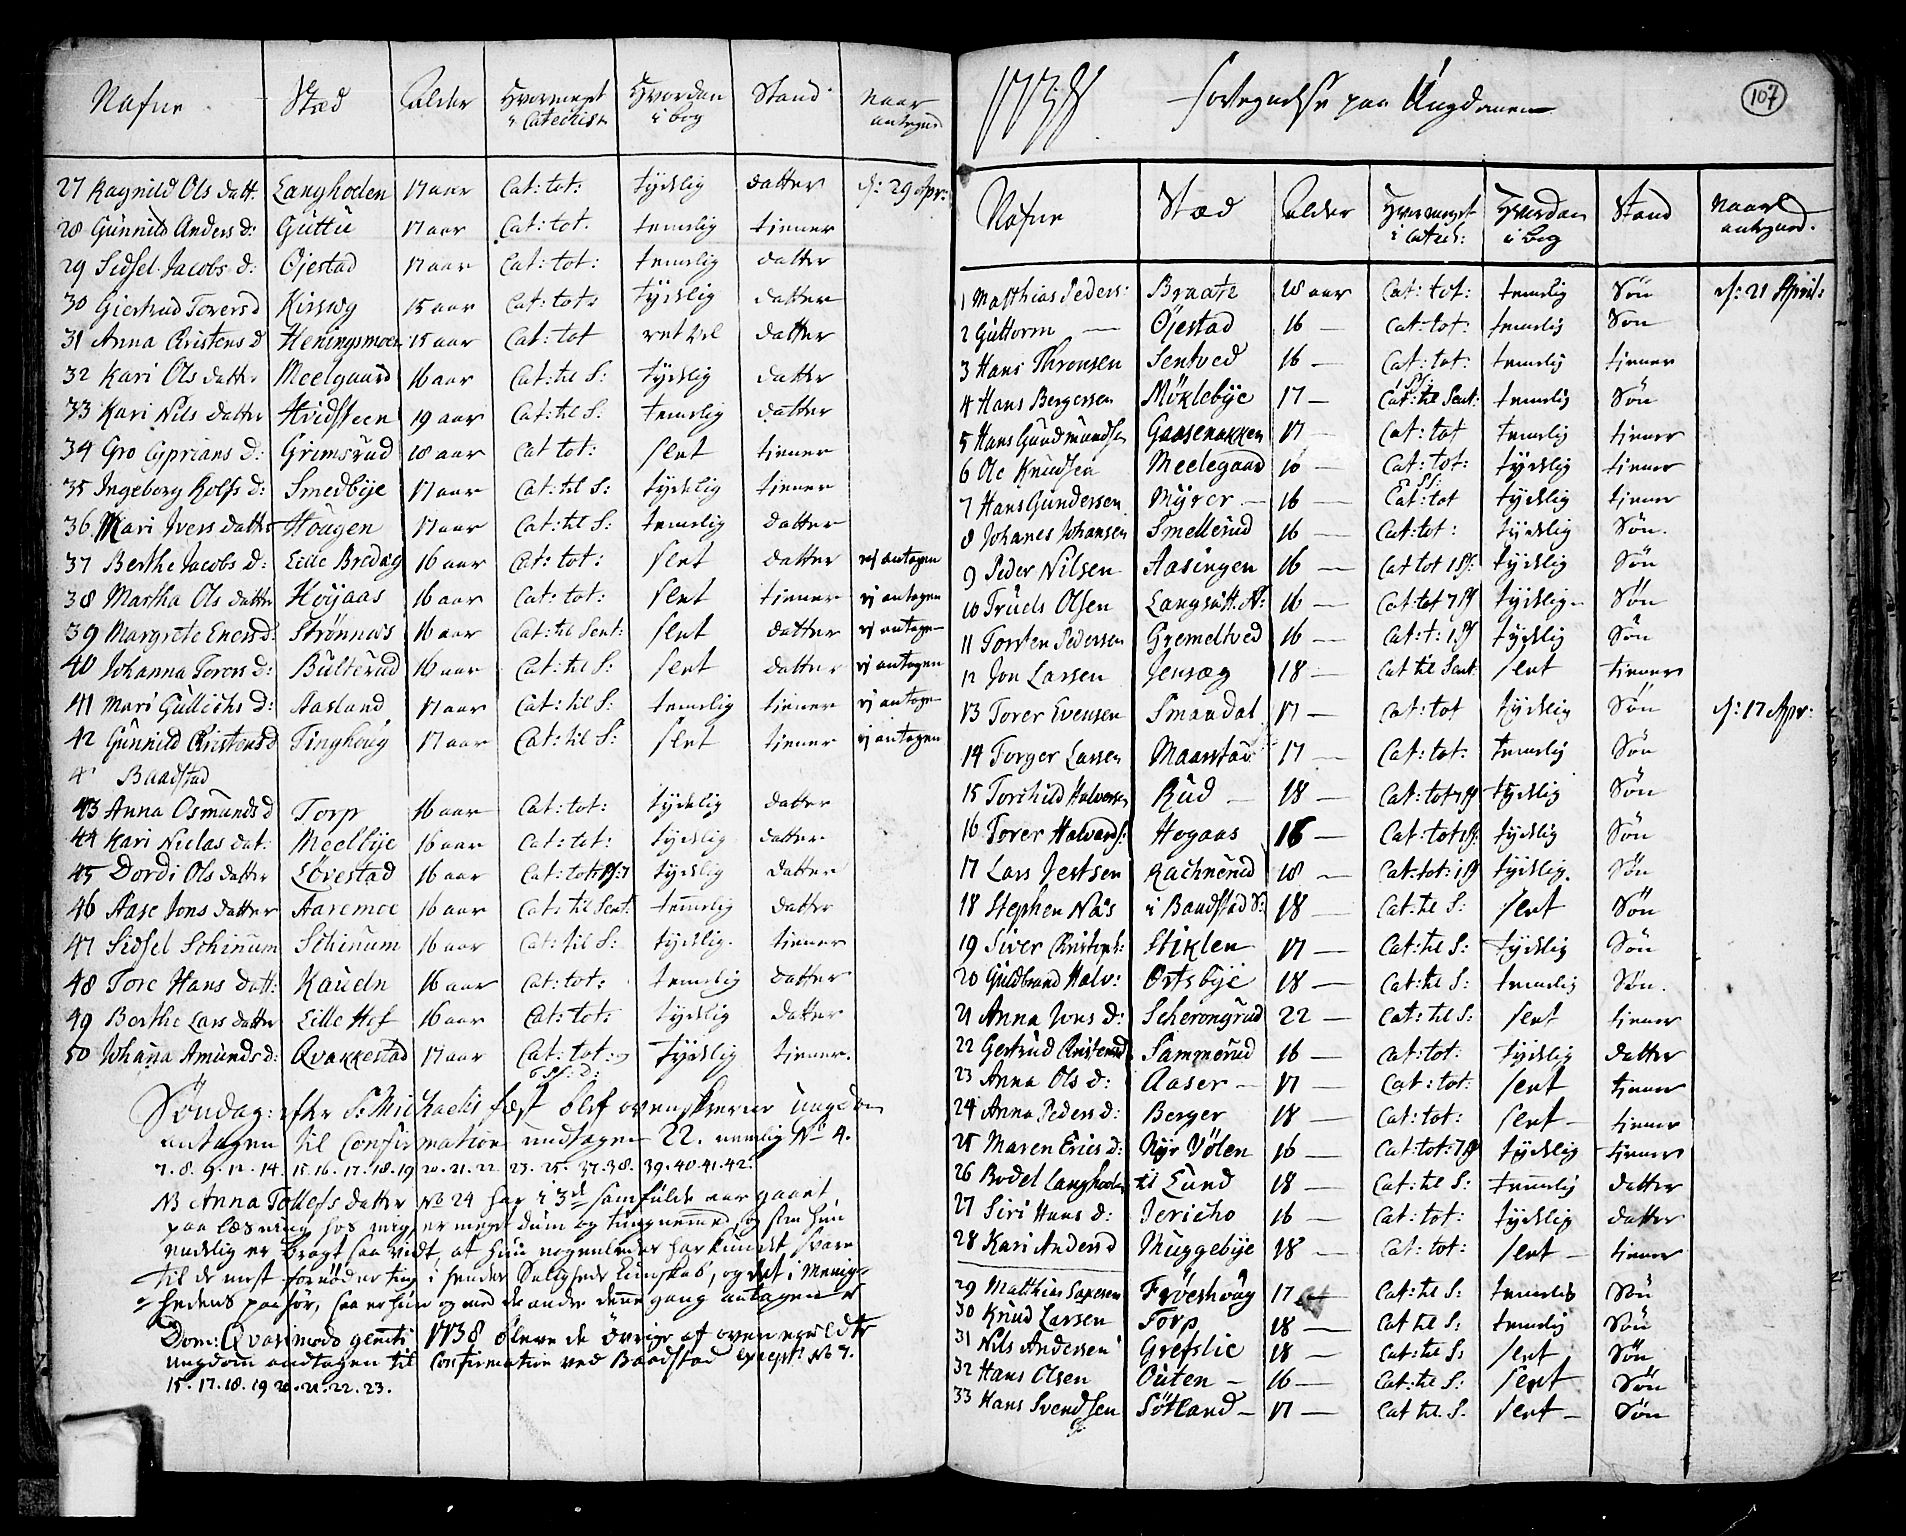 Nafne Stæd Alder Hvormeget i Catechism Hvordan i bog Stand Naar antegned
27 Ragnild Ols datt: Langhoden 17 aar Cat: tot: tydelig datter d: 29 Apr:
28 Gunnild Anders d: Guttu 17 aar Cat: tot: temelig tiener
29 Sidsel Jacobs d: Ojestad 17 aar Cat: tot: temelig datter
30 Giertrud Torers d Kirsvig 15 aar Cat: tot: tydelig datter
31 Anna Cristens d Heningsmoen 15 aar Cat: tot ret vel datter
32 Kari Ols datter Meelgaard 16 aar Cat: til S: tydelig datter
33 Kari Nils datter Hvidsteen 19 aar Cat: til S: temelig datter
34 Gro Cyprians d: Grimsrud 18 aar Cat tot: slet tiener
35 Ingeborg Rolfs d: Smedbye 17 aar Cat: til S: tydelig tiener
36 Mari Ivers datter Hougen 17 aar Cat: til S: temelig datter
37 Berthe Jacobs d: Lille Bredeg 16 aar Cat: tot: slet datter ej antagen
38 Martha Ols datter Höyaas 16 aar Cat: tot: slet tiener ej antagen
39 Margrete Eners d: Strønnæs 16 aar Cat: til Sent: slet datter ej antagen
40 Johanna Torers d: Bulterud 16 aar Cat: til S: slet datter ej antagen
41 Mari Gullichs d: Aasland 17 aar Cat: til S: temelig tiener ej antagen
42 Gunnild Cristens d Tinghoug 17 aar Cat: til S: slet tiener ej antagen
Baadstad
43 Anna Osmunds d Torp 16 aar Cat: tot: tydelig datter
44 Kari Niclas dat: Meelbye 16 aar Cat: tot: tydelig datter
45 Dordi Ols datter Lövestad 16 aar Cat: tot: tydelig datter
46 Aase Jons datter Aaremoe 16 aar Cat: til Sent: temelig datter
47 Sidsel Schinum Schinum 16 aar Cat: til S: tydelig tiener
48 Tore Hans datt: Kaueln 16 aar Cat: tot: temelig datter
49 Berthe Lars datter Lille Hof 16 aar Cat: tot: tydelig datter
50 Johana Amunds d: Qvakkestad 17 aar Cat: tot: tydelig tiener.
Söndag: efter S: Michaelis fest blef ovenskrevne ungdom
antagen til Confirmation undtagen 22. nemlig No 4.
7. 8. 9. 12. 14. 15. 16. 17. 18. 19 20. 21. 22 23. 25. 37. 38. 39. 40. 41. 42.
NB Anna Tollefs datter No 24 har i 3de samfulde aar gaaet
paa læsning hos mig, er meget dum og tungnemmed, og som hun
endelig er bragt saa vidt, at hun nogenledes har kundet svare
til de mest fornødne ting i hendes Saligheds kundskab, og det i Menig-
hedens paahør, saa er hun og med de andre denne gang antagen
Dom: Qvasimodo geniti 1738 bleve de øvrige af oven meldte
ungdom andtagen til Confirmation ved Baadstad except: No 7.
15. 17. 18. 19 20. 21. 22. 23.
1738 Fortegnelse paa Ungdomen
107
Nafne Stæd Alder Hvormeget i Catech: Hvordan i bog Stand Naar antegned.
1 Matthias Peders: Braate 18 aar Cat: tot: temelig Sön d: 21 April:
2 Guttorm — Ojestad 16 — Cat: tot: temelig Sön
3 Hans Thronsen Sentved 16 — Cat: tot: temelig tiener
4 Hans Bergersen Möklebye 17 — Cat: til Sent: temelig Sön
5 Hans Gundmundsen Gaasenakken 17 — Cat: tot temelig tiener
6 Ole Knudsen Meelegaard 18 — Cat: tot: tydelig tiener
7 Hans Gundersen Myrer — 16 — Cat: tot tydelig tiener
8 Johanes Johansen Smellerud 16 — Cat: tot: tydelig Sön.
9 Peder Nilsen Aasingen 16 — Cat tot tydelig Sön
10 Truels Olsen 16 — Cat: tot tydelig — Sön
11 Torsten Pedersen Gremeltved 16 — Cat: t: tydelig Sön
12 Jon Larsen Jensæg 18 — Cat til Sent slet tiener
13 Torer Evensen Smaadal 17 — Cat: tot tydelig Sön d: 17 Apr:
14 Torger Larsen Maarstad 17 — Cat: tot: temelig Sön
15 Torchild Halversen Rud — 18 — Cat: tot tydelig Sön
16 Torer Halvards: Hogaas 16 — Cat: tot tydelig Sön
17 Lars Jertsen Rachnerud 18 — Cat: tot: tydelig. Sön
18 Stephen Næs i Baadstad S: 18 — Cat: til S: slet Sön
19 Siver Cristens: Stiklen 17 — Cat: til S: tydelig Sön
20 Guldbrand Halv: Ortsbye 18 — Cat: til S: temelig Sön.
21 Anna Jons d: Scherongrud 22 — Cat: til S: slet tiener
22 Gertrud Cristensd Sammerud 16 — Cat: tot: tydelig datter
23 Anna Ols d: Aaser — 17 — Cat: tot: slet tiener
24 Anna Peders d: Berger 18 — Cat: tot: slet — tiener
25 Maren Erics d: Nyr Völen 16 — Cat: tot: tydelig tiener
26 Bodel Langhoden til Lund 18 — Cat: til S: temelig datter
27 Siri Hans d: Jericho 16 — Cat: tot: tydelig datter
28 Kari Anders d Muggebye 18 — Cat: tot: slet — tiener
29 Matthis Saxesen Fröeshoug 17 — Cat: til S: temelig Sön
30 Knud Larsen Torp 18 — Cat til S: temelig Sön
31 Nils Andersen Grefslie 18 — Cat: til S: slet Sön
32 Hans Olsen Outen — 16 — Cat: til S: slet Sön
33 Hans Svendsen Sötland — 17 — Cat til S. slet — Sön